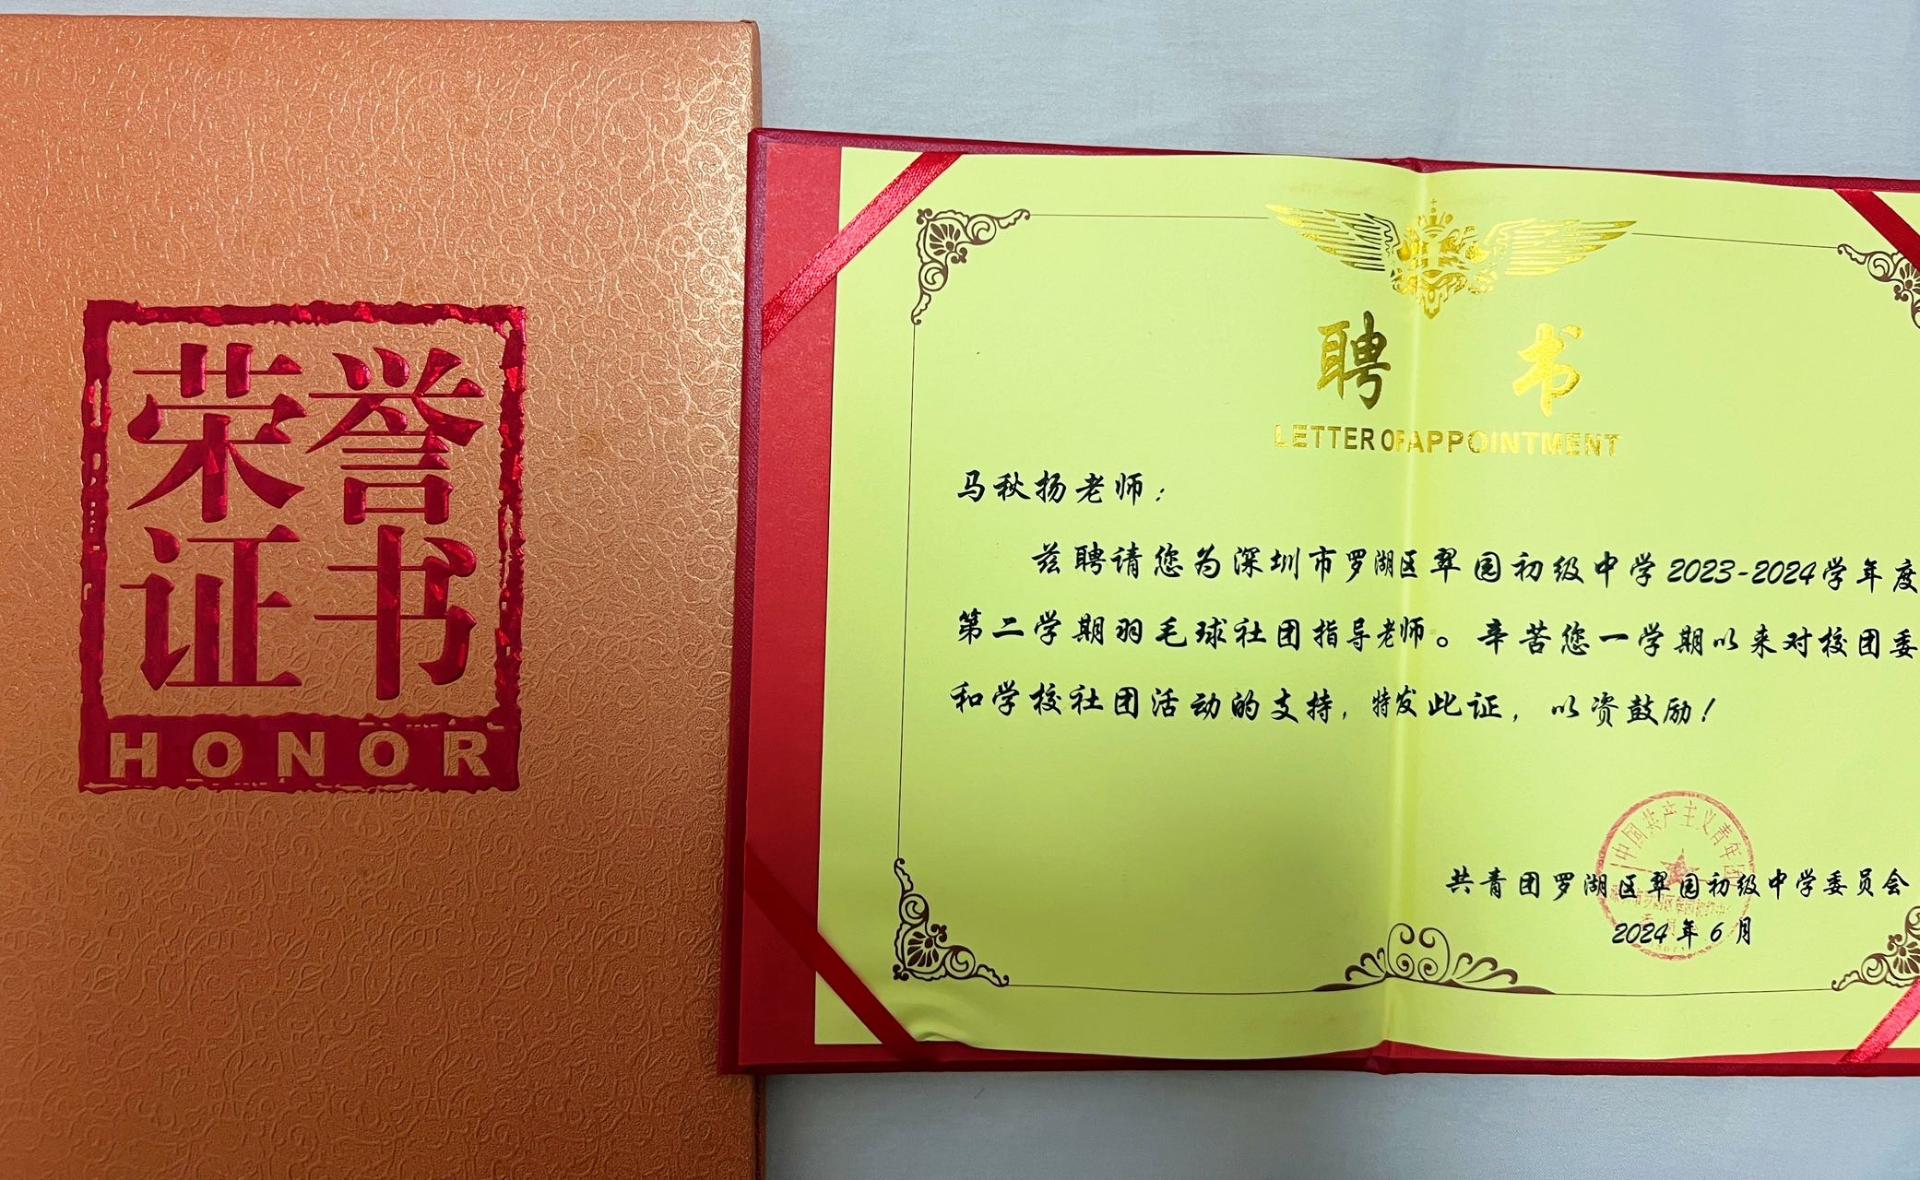 荣誉
证书
HONOR
聘书
LETTER OF APPOINTMENT
马秋扬老师：
兹聘请您为深圳市罗湖区翠园初级中学2023-2024学年度
第二学期羽毛球社团指导老师。辛苦您一学期以来对校团委
和学校社团活动的支持，特发此证，以资鼓励！
中国共产主义青年团
共青团罗湖区翠园初级中学委员会
2024年6月